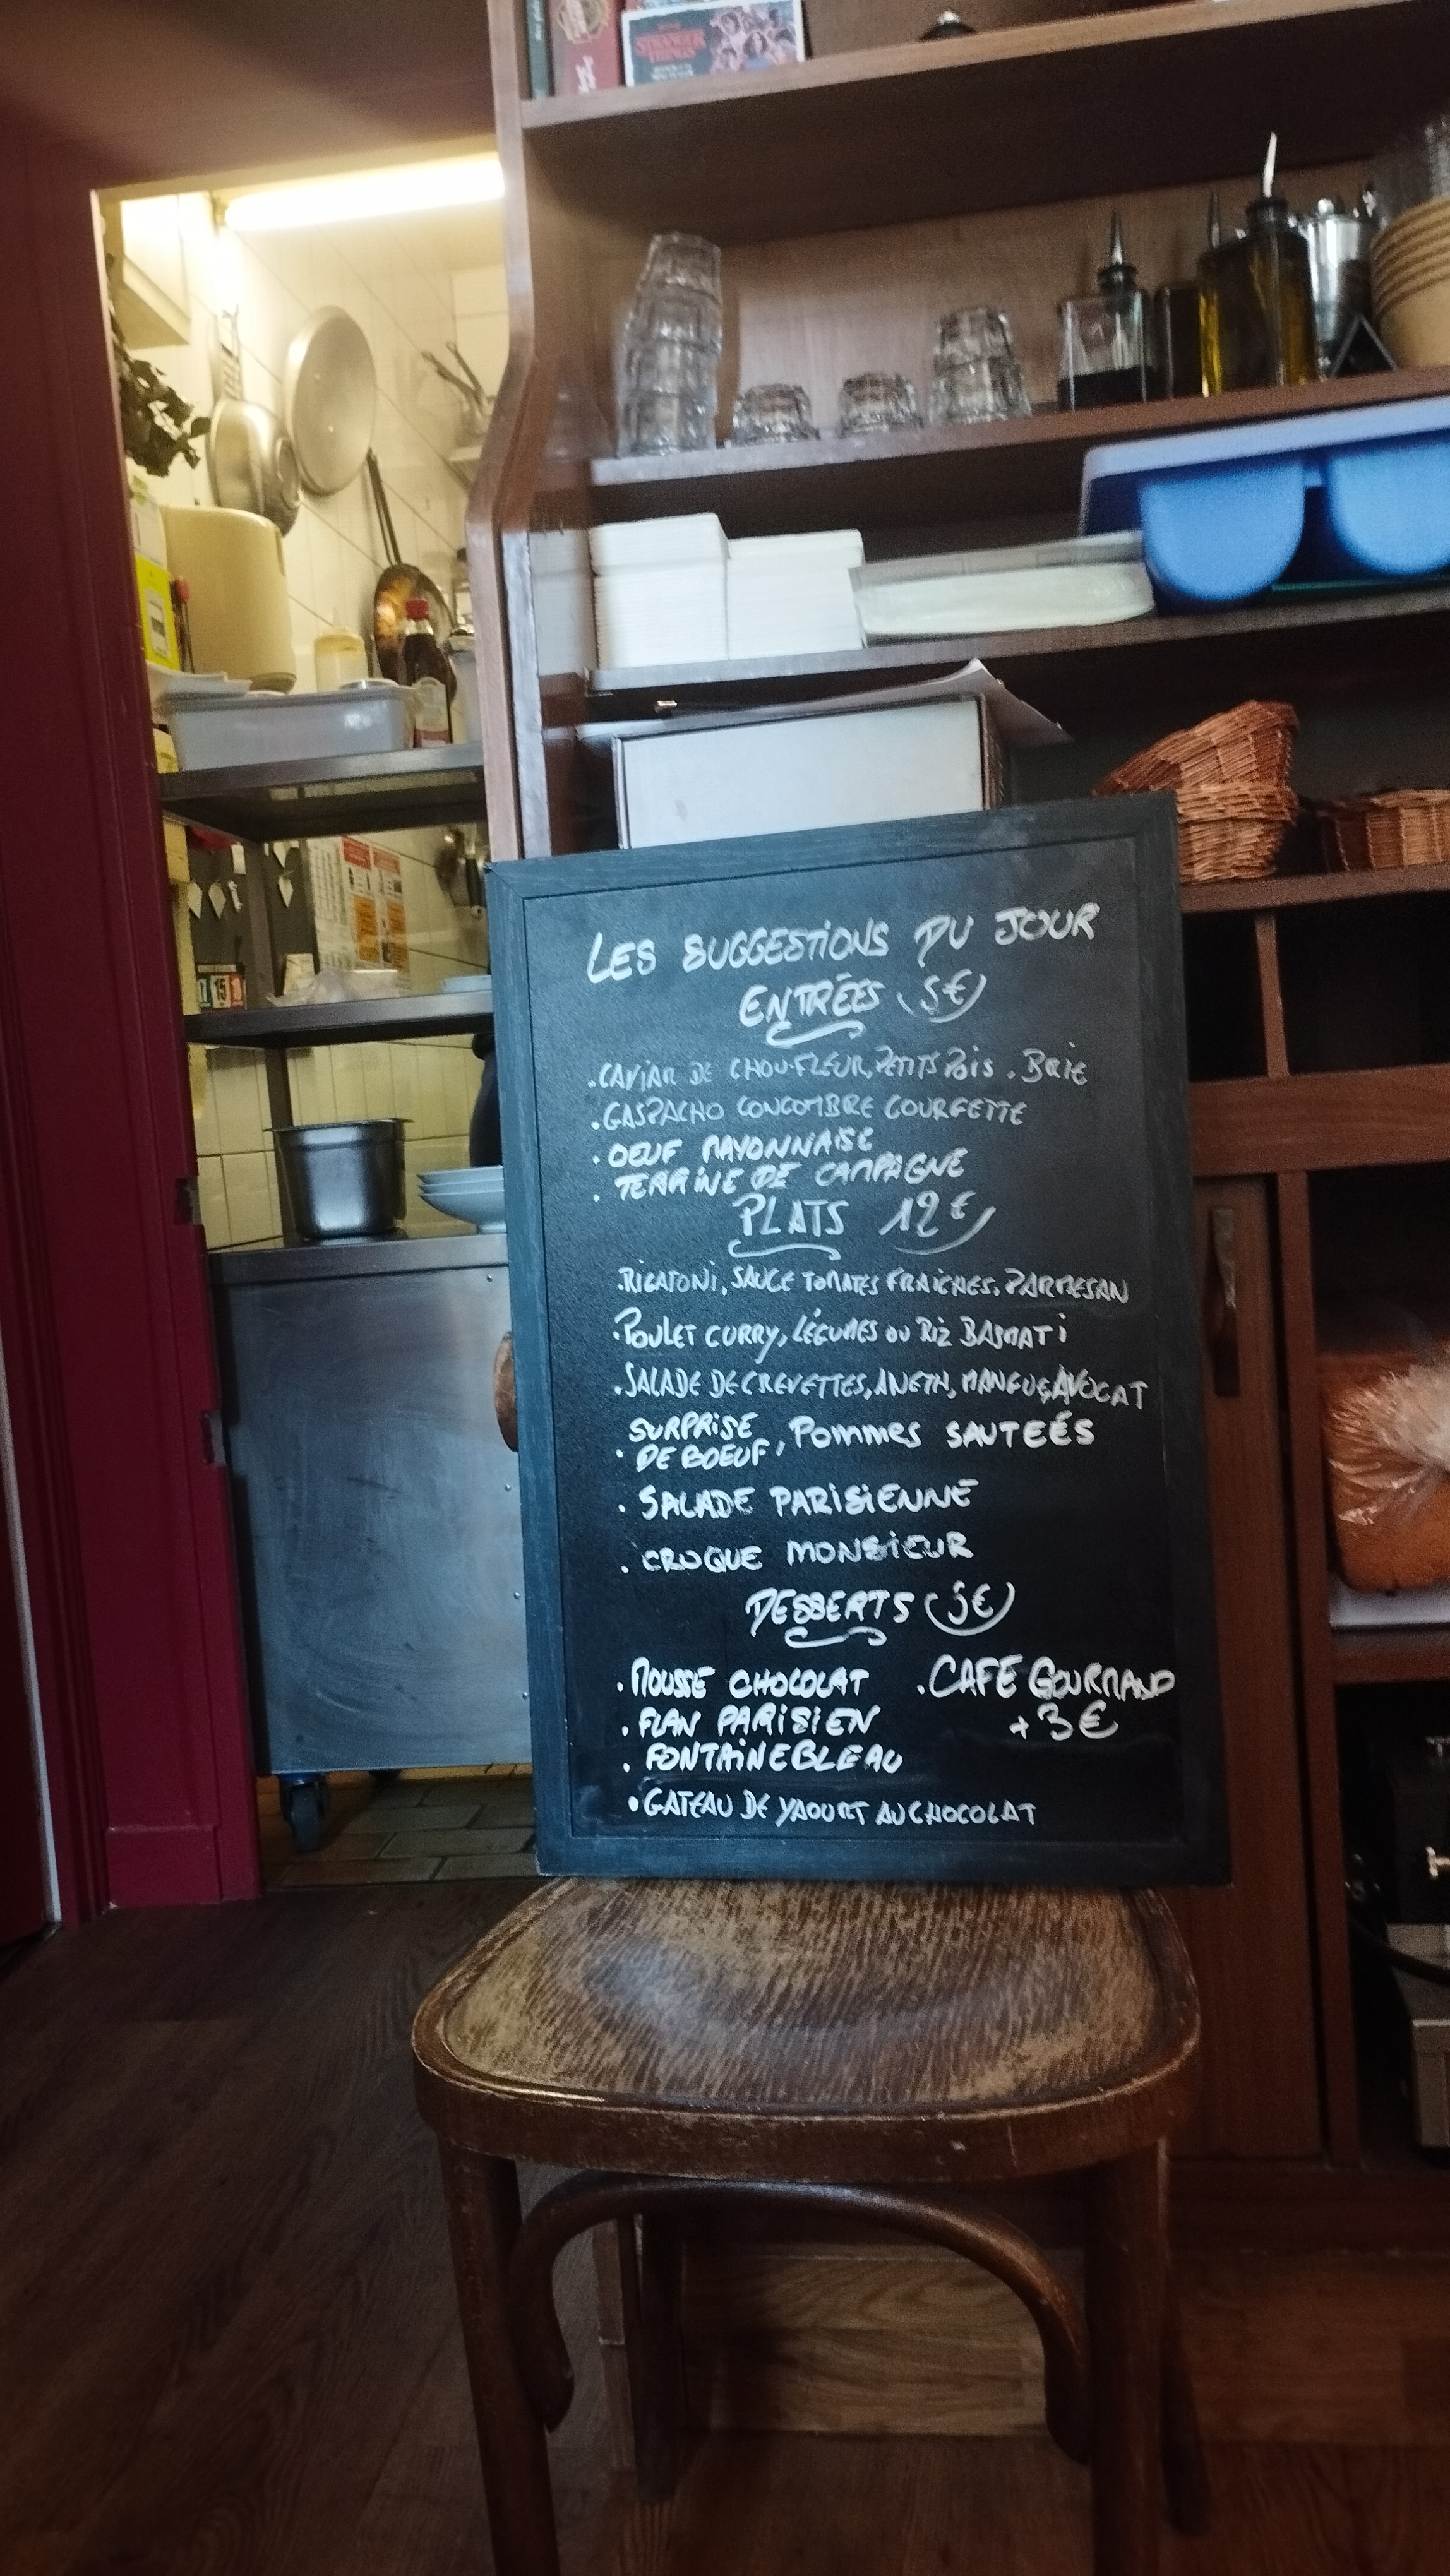 STRANGER
THINGS
LES SUGGESTIONS DU JOUR
ENTRÉES (5€)
. CAVIAR DE CHOU-FLEUR, PETITS POIS . BRIE
. GASPACHO CONCOMBRE COURGETTE
. OEUF MAYONNAISE
. TERRINE DE CAMPAGNE
PLATS 12€
. RIGATONI, SAUCE TOMATES FRAICHES, PARMESAN
. POULET CURRY, LÉGUMES OU RIZ BASMATI
. SALADE DE CREVETTES, ANETH, MANGUE, AVOCAT
. SURPRISE DE BOEUF, POMMES SAUTEÉS
. SALADE PARISIENNE
. CROQUE MONSIEUR
DESSERTS (5€)
. MOUSSE CHOCOLAT . CAFE GOURMAND
+3€
. FLAN PARISIEN
. FONTAINEBLEAU
. GATEAU DE YAOURT AU CHOCOLAT